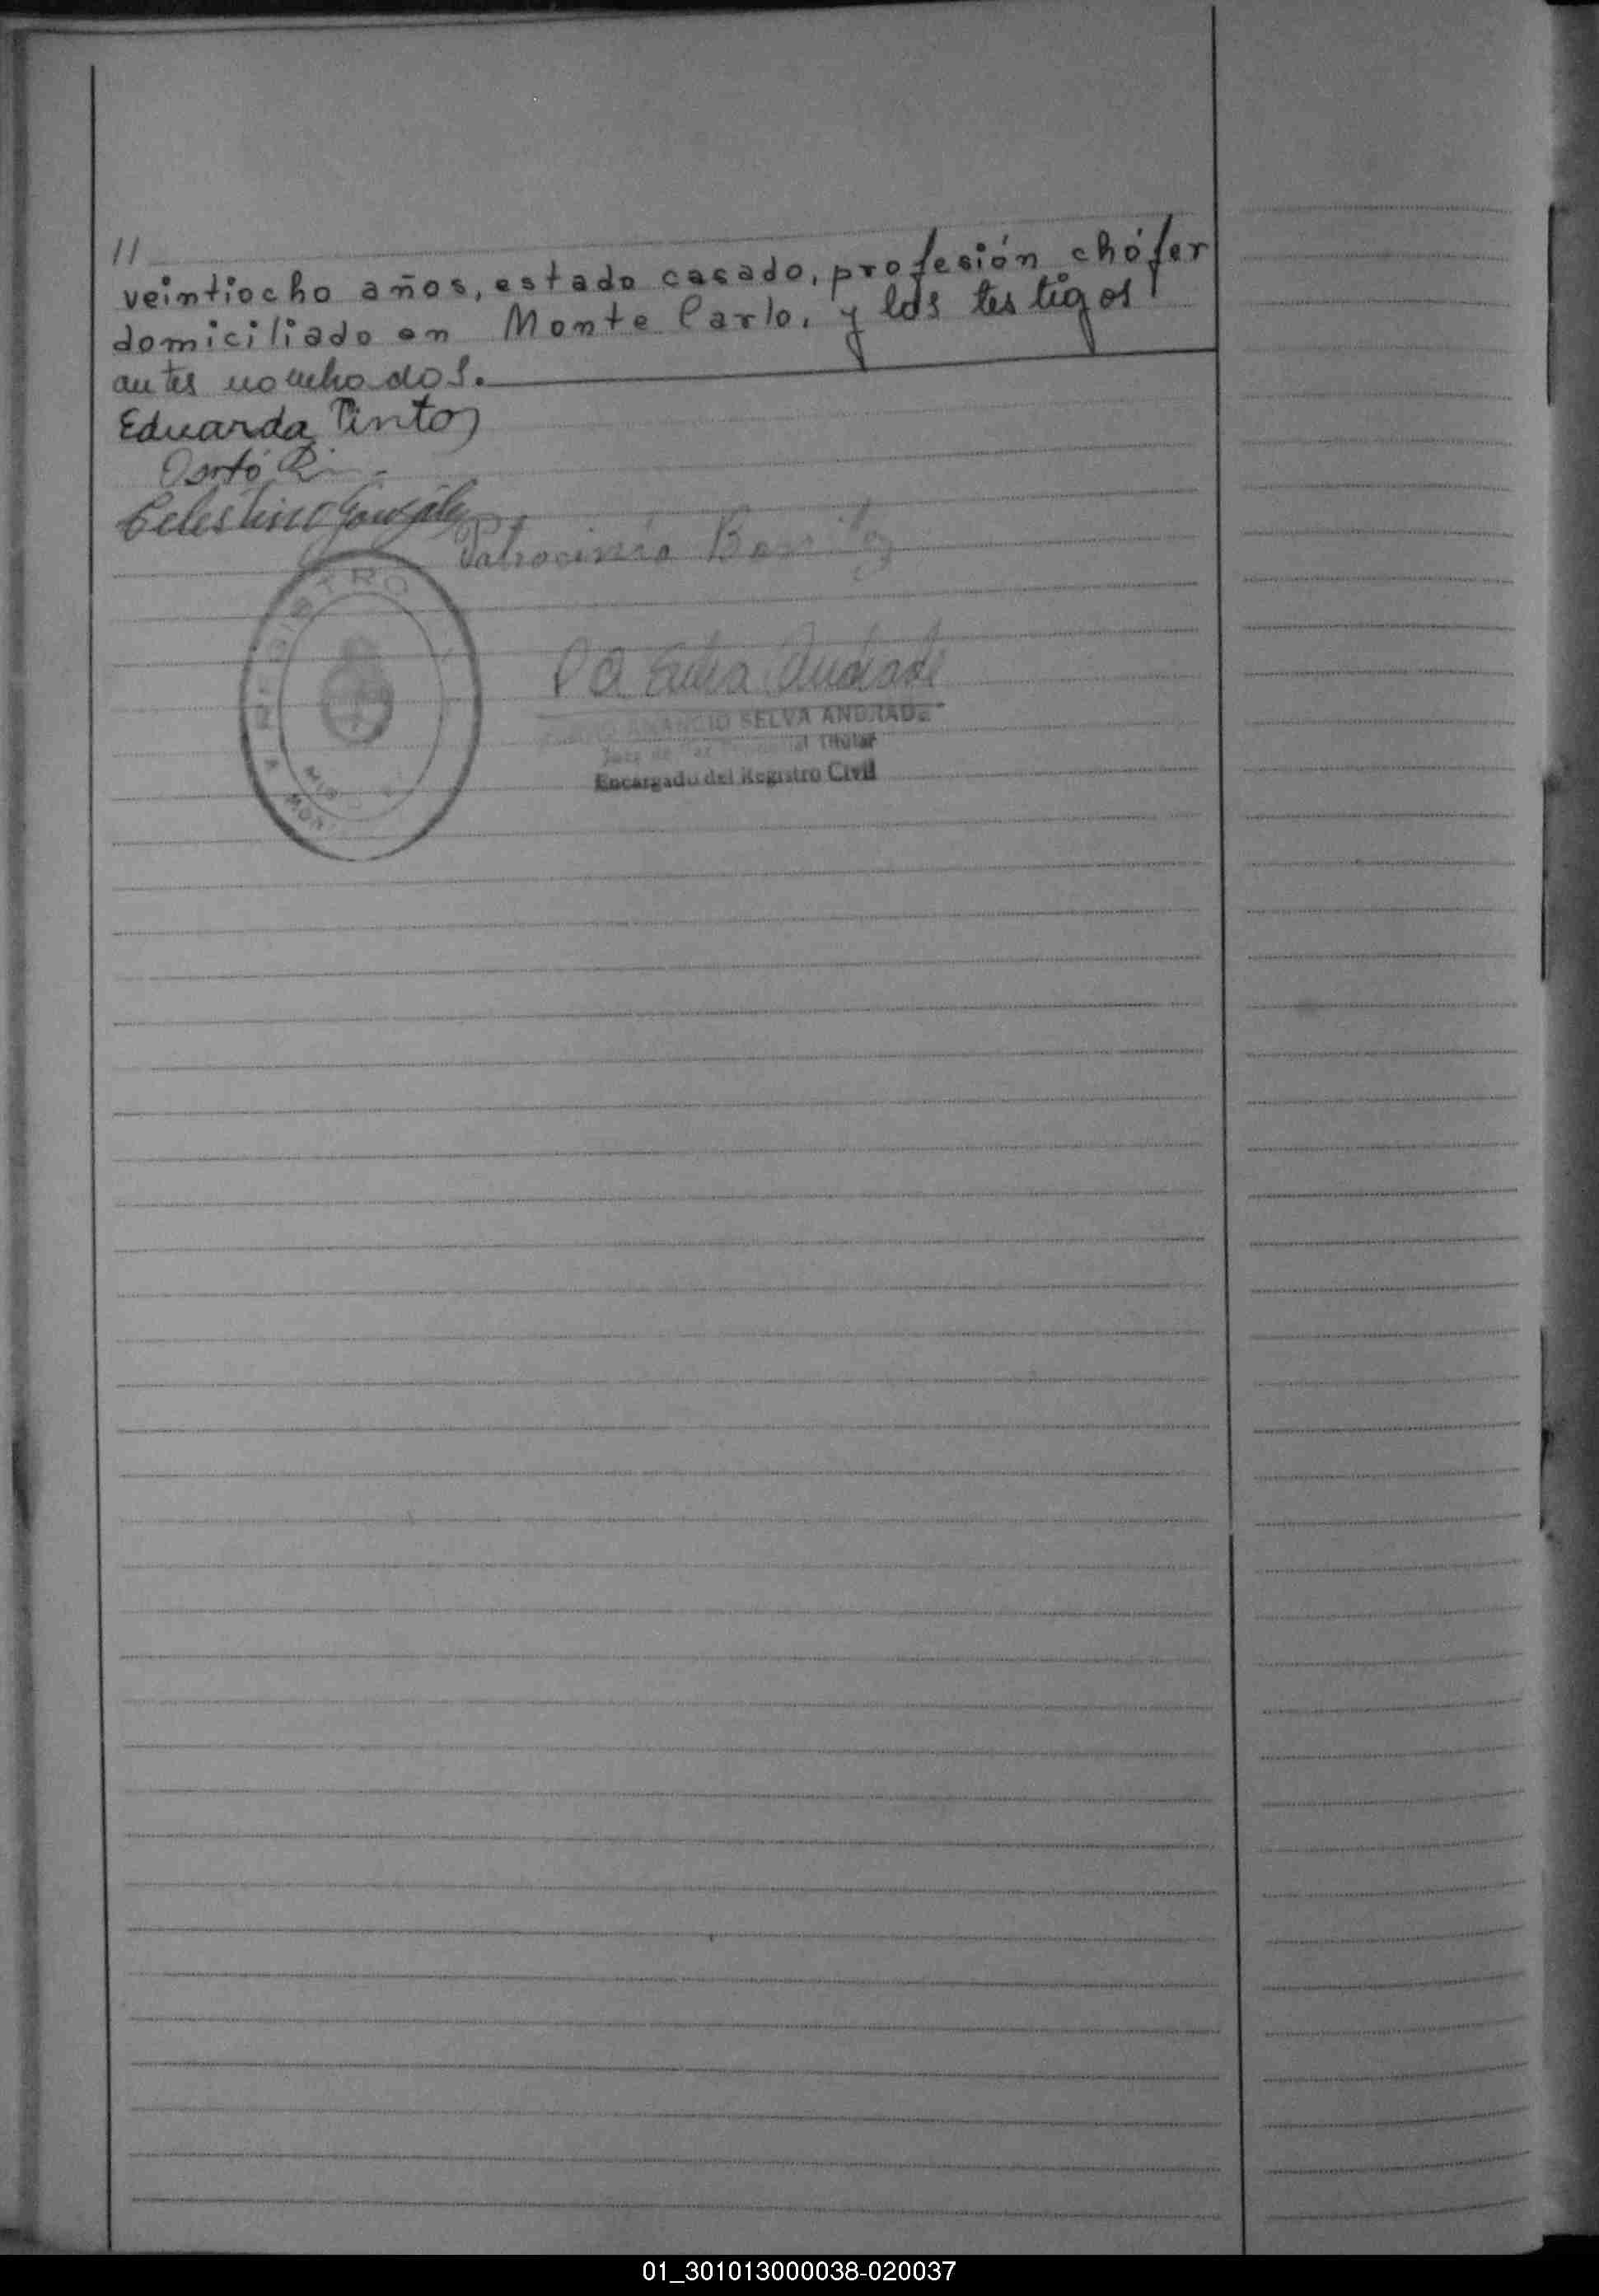 11
veintiocho años, estado casado, profesión chófer
domiciliado en Monte Carlo, y los testigos
antes nombrados.
Eduarda Pinto
Celestino González
Patrocinia
Selva Andrade
AMANCIO SELVA ANDRADE
Juez de Paz Titular
Encargado del Registro Civil
01_301013000038-020037